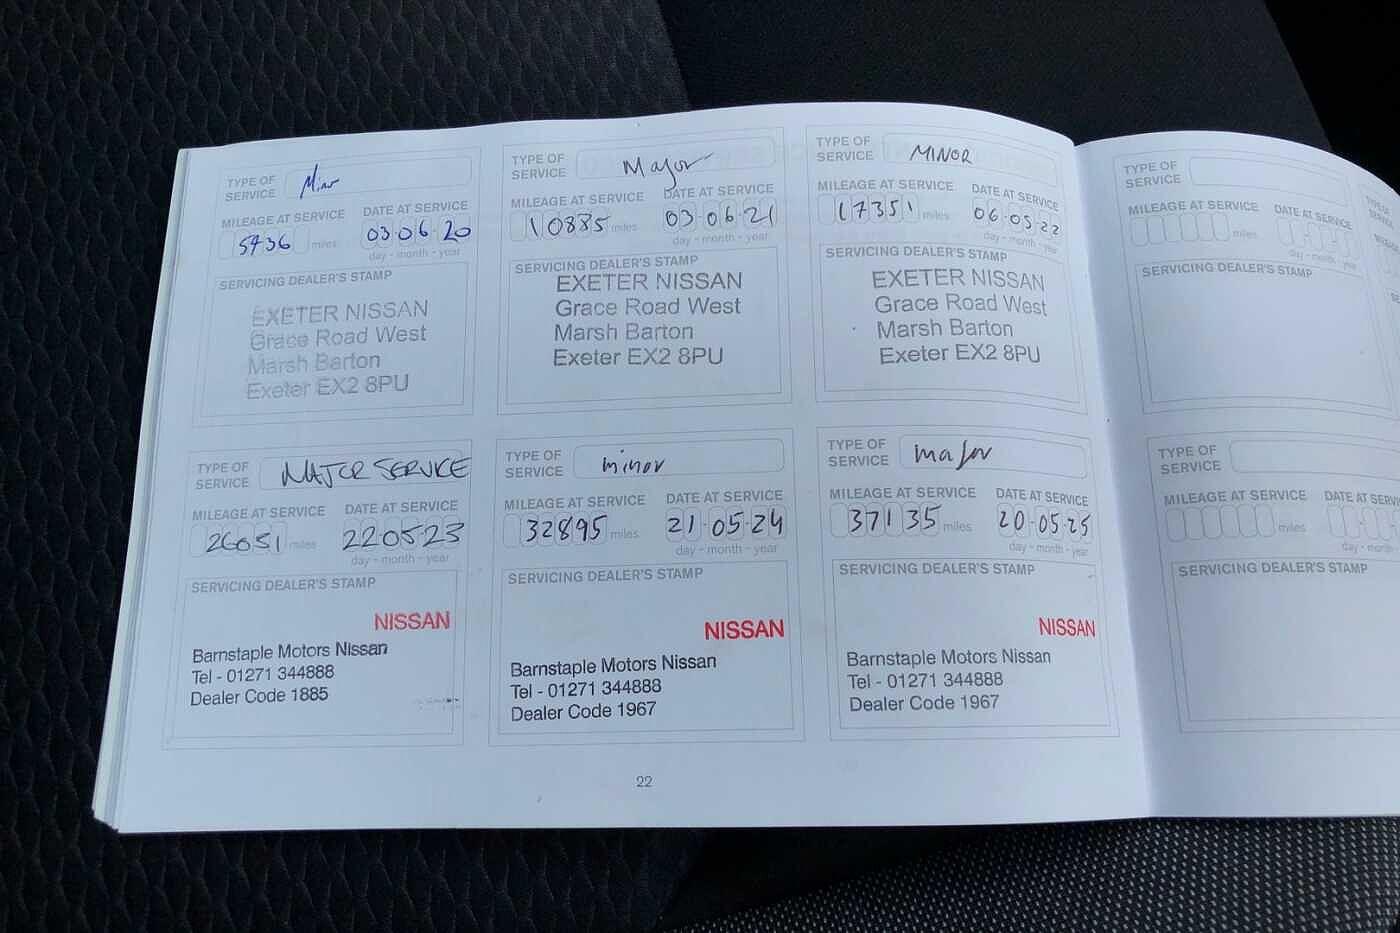 TYPE OF SERVICE Minor
MILEAGE AT SERVICE DATE AT SERVICE
5436 miles 03 06 20
day - month - year
SERVICING DEALER'S STAMP
EXETER NISSAN
Grace Road West
Marsh Barton
Exeter EX2 8PU
TYPE OF SERVICE Major
MILEAGE AT SERVICE DATE AT SERVICE
10885 miles 03 06 21
day - month - year
SERVICING DEALER'S STAMP
EXETER NISSAN
Grace Road West
Marsh Barton
Exeter EX2 8PU
TYPE OF SERVICE MINOR
MILEAGE AT SERVICE DATE AT SERVICE
17351 miles 06 05 22
day - month - year
SERVICING DEALER'S STAMP
EXETER NISSAN
Grace Road West
Marsh Barton
Exeter EX2 8PU
TYPE OF SERVICE MAJOR SERVICE
MILEAGE AT SERVICE DATE AT SERVICE
26051 miles 22 05 23
day - month - year
SERVICING DEALER'S STAMP
NISSAN
Barnstaple Motors Nissan
Tel - 01271 344888
Dealer Code 1885
TYPE OF SERVICE minor
MILEAGE AT SERVICE DATE AT SERVICE
32895 miles 21-05-24
day - month - year
SERVICING DEALER'S STAMP
NISSAN
Barnstaple Motors Nissan
Tel - 01271 344888
Dealer Code 1967
TYPE OF SERVICE major
MILEAGE AT SERVICE DATE AT SERVICE
37135 miles 20-05-25
day - month - year
SERVICING DEALER'S STAMP
NISSAN
Barnstaple Motors Nissan
Tel - 01271 344888
Dealer Code 1967
22
TYPE OF SERVICE
MILEAGE AT SERVICE DATE AT SERVICE
miles
day - month - year
SERVICING DEALER'S STAMP
TYPE OF SERVICE
MILEAGE AT SERVICE
miles
day - month
SERVICING DEALER'S STAMP